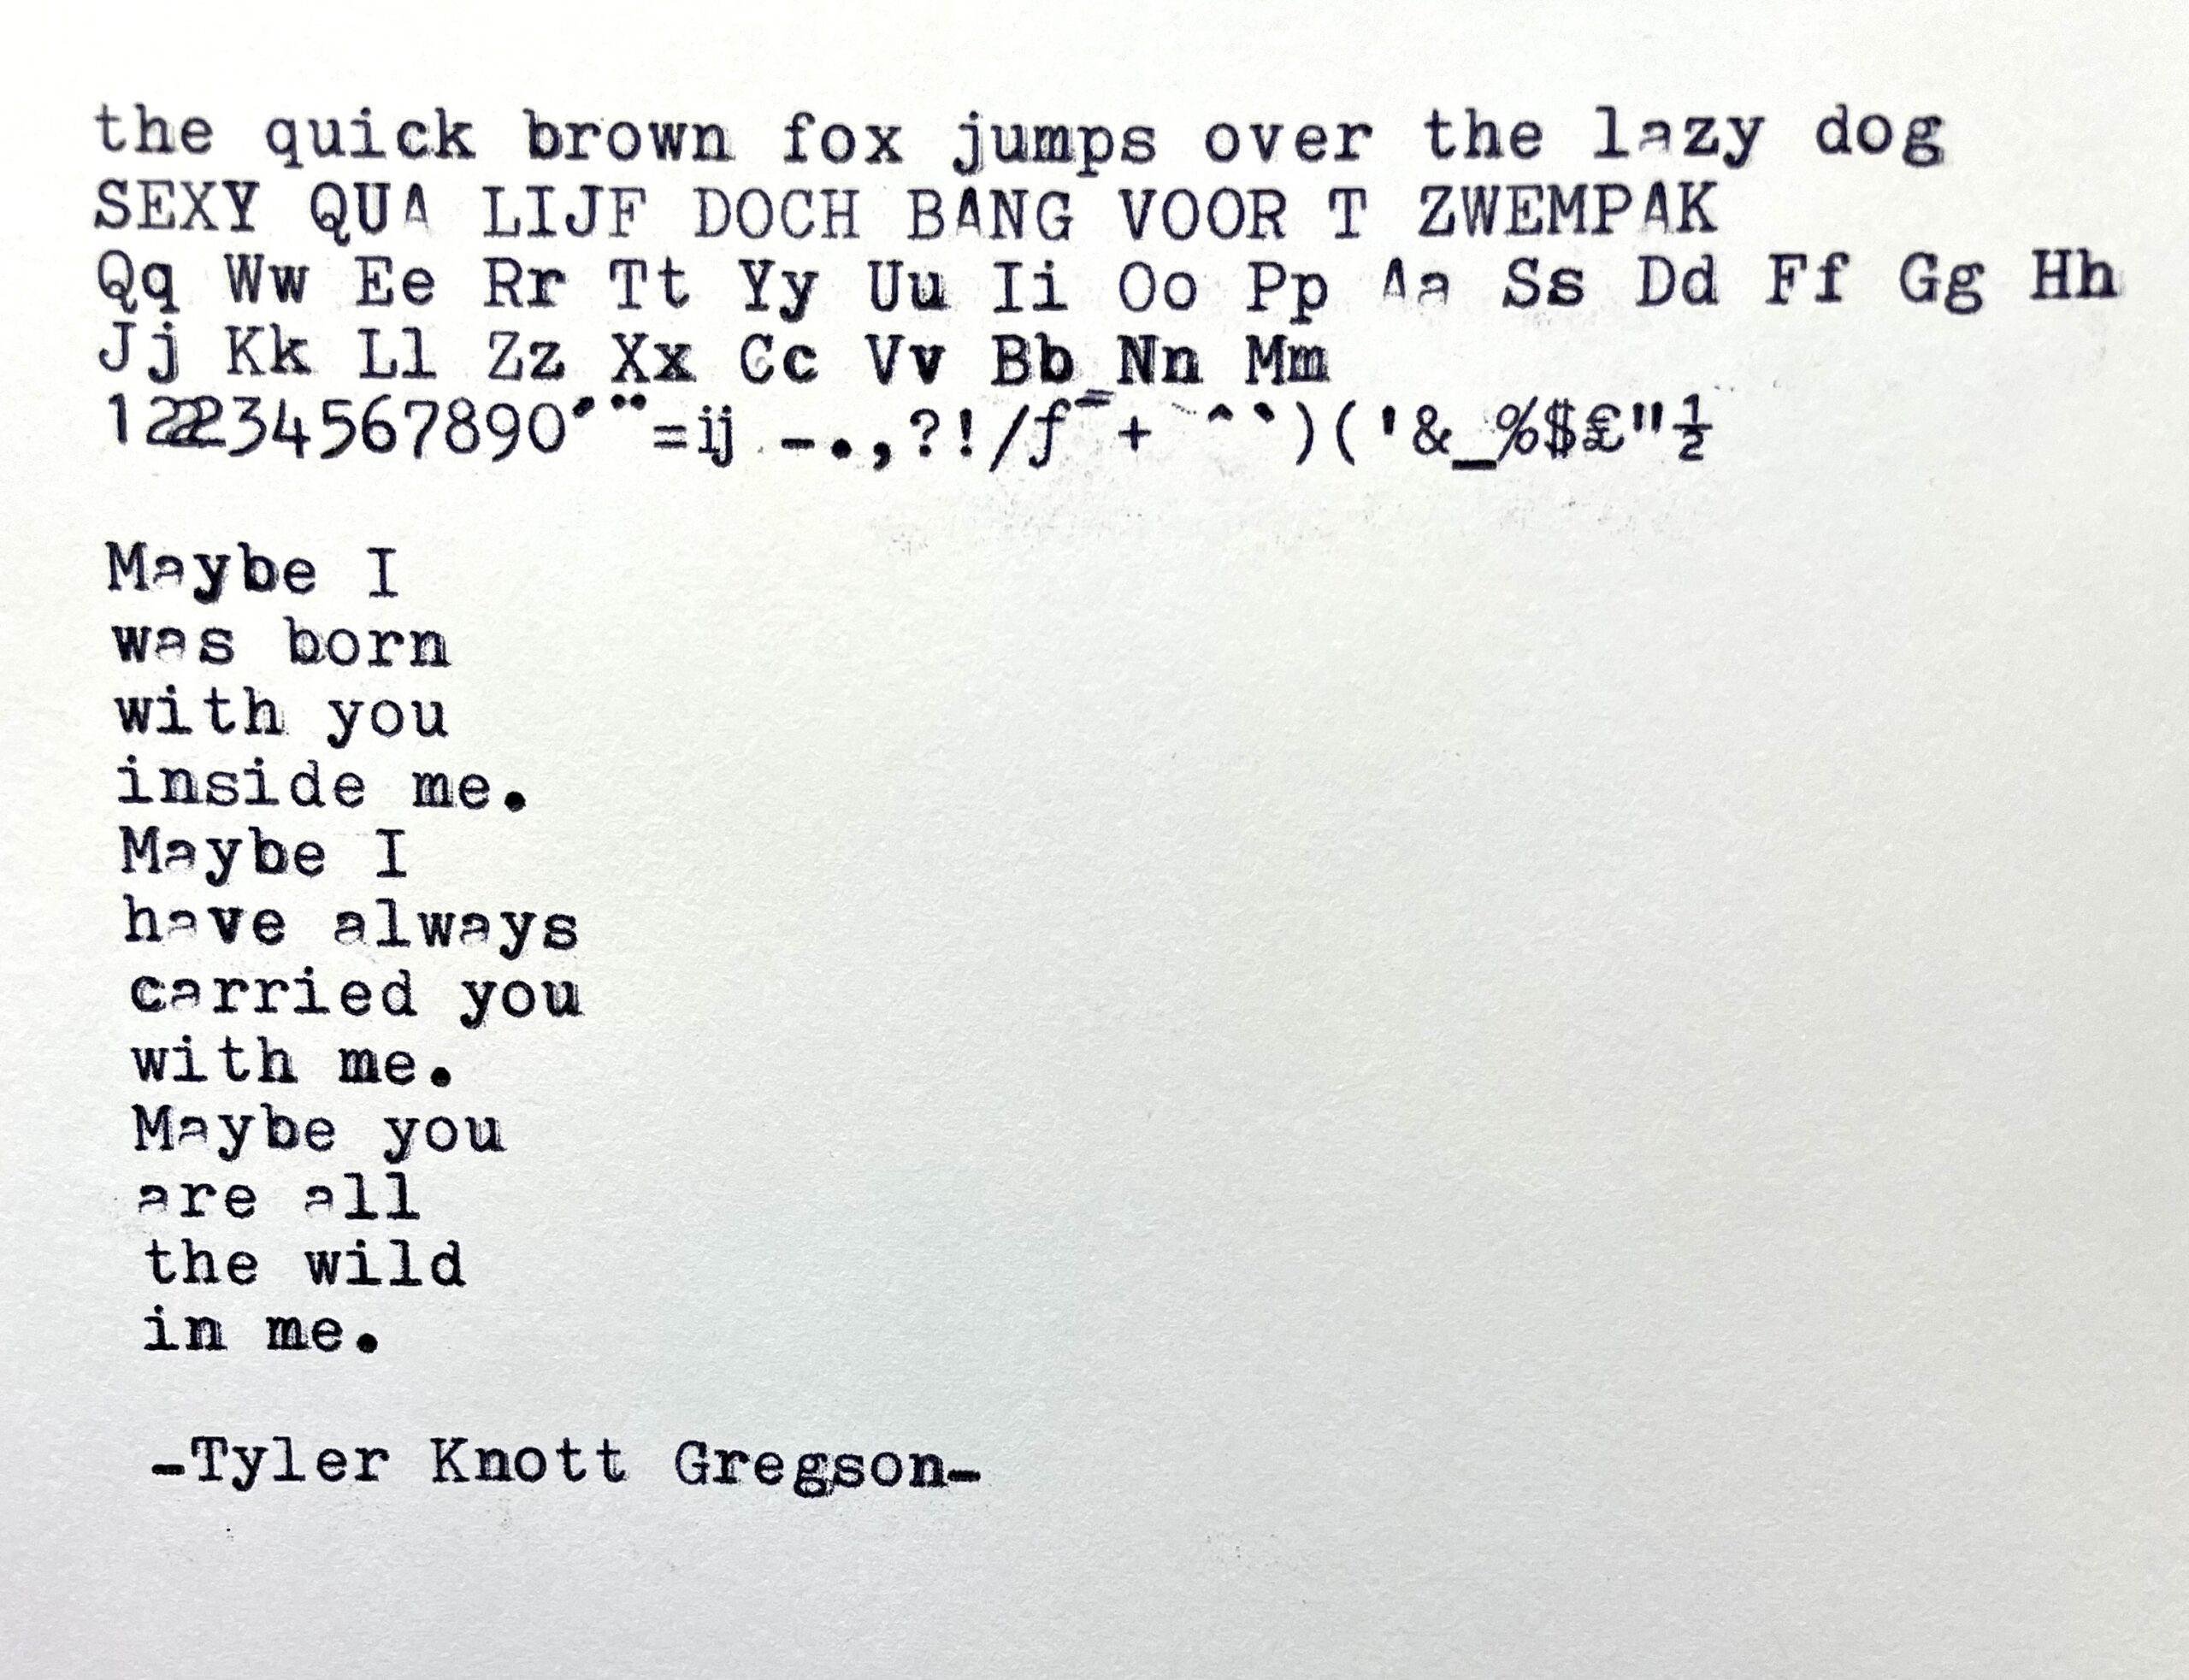 the quick brown fox jumps over the lazy dog
SEXY QUA LIJF DOCH BANG VOOR T ZWEMPAK
Qq Ww Ee Rr Tt Yy Uu Ii Oo Pp Aa Ss Dd Ff Gg Hh
Jj Kk Ll Zz Xx Cc Vv Bb Nn Mm
12234567890´¨=ij -.,?!/ƒ=+ ^`)('&_%$£"½
Maybe I
was born
with you
inside me.
Maybe I
have always
carried you
with me.
Maybe you
are all
the wild
in me.
-Tyler Knott Gregson-